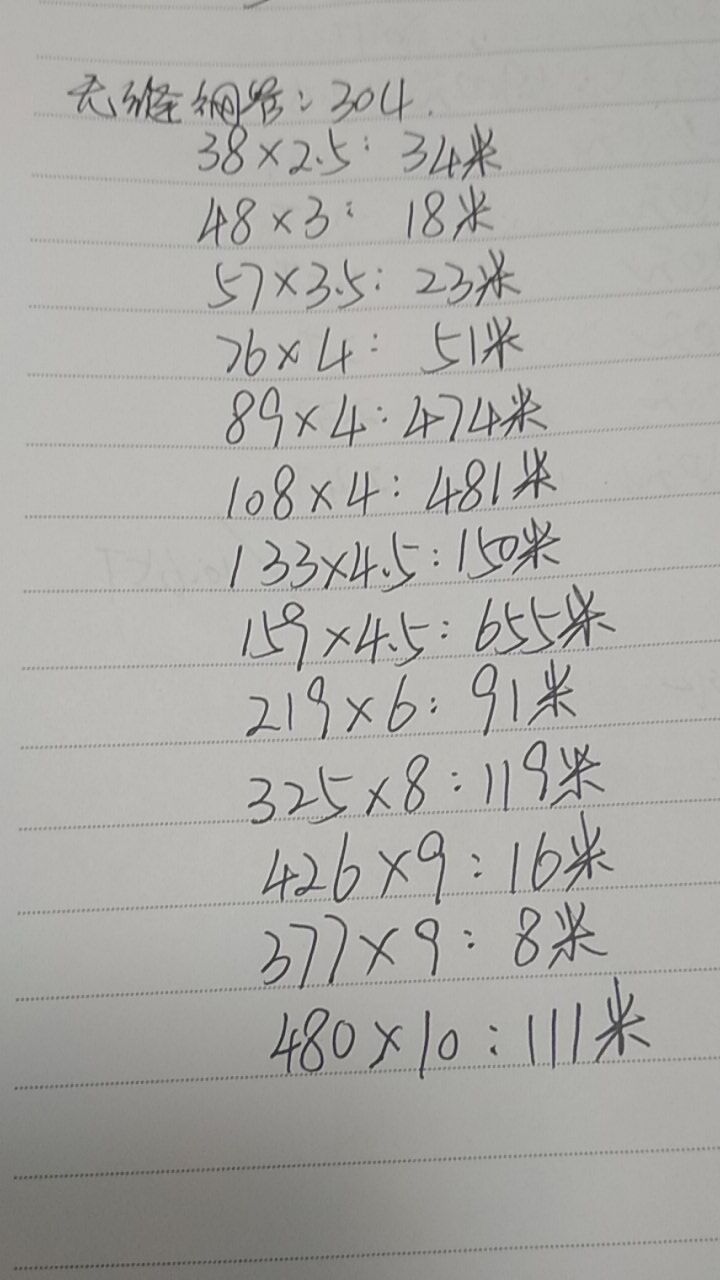 无缝钢管：304.
38×2.5：34米
48×3：18米
57×3.5：23米
76×4：51米
89×4：474米
108×4：481米
133×4.5：150米
159×4.5：655米
219×6：91米
325×8：119米
426×9：16米
377×9：8米
480×10：111米